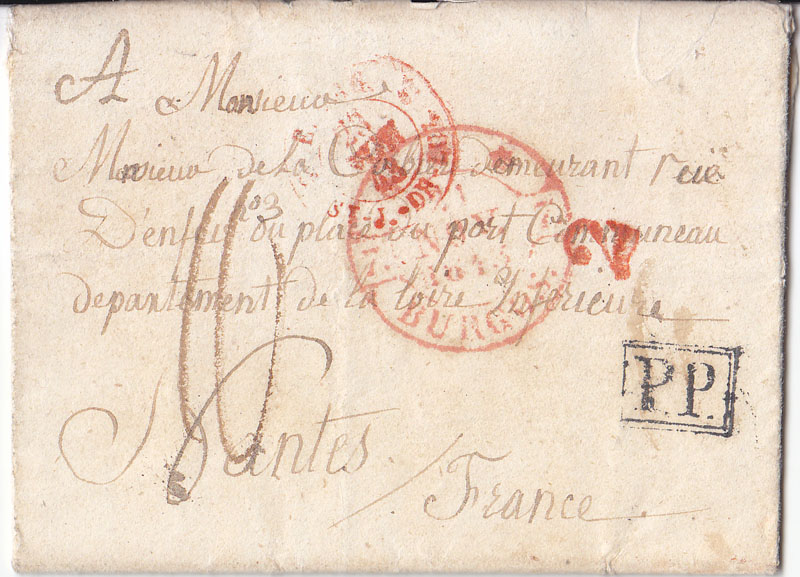 A Monsieur
Monsieur de La demeurant rue
no 3
D'enfer ou place du port Communeau
departement de la loire Inferieure
Nantes
France
BURGOS
ST.J.DE
2
PP.